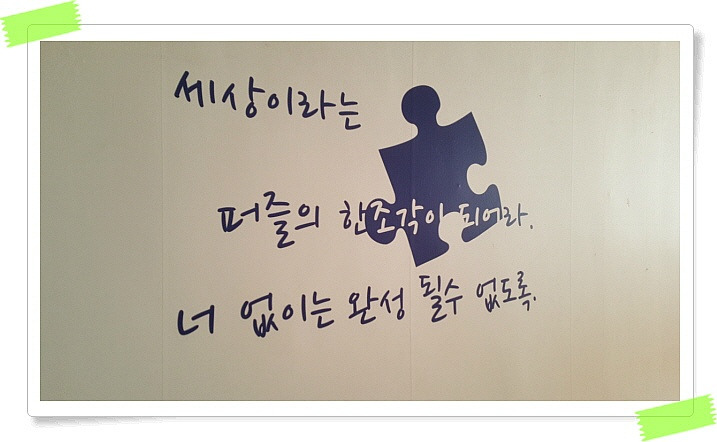 세상이라는
퍼즐의 한조각이 되어라.
너 없이는 완성 될수 없도록.